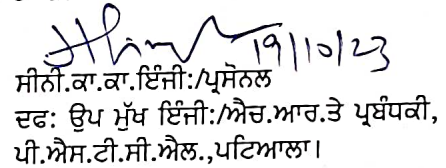 19/10/23
ਸੀਨੀ.ਕਾ.ਕਾ.ਇੰਜੀ:/ਪ੍ਰਸੋਨਲ
ਦਫ: ਉਪ ਮੁੱਖ ਇੰਜੀ:/ਐਚ.ਆਰ.ਤੇ ਪ੍ਰਬੰਧਕੀ,
ਪੀ.ਐਸ.ਟੀ.ਸੀ.ਐਲ.,ਪਟਿਆਲਾ।